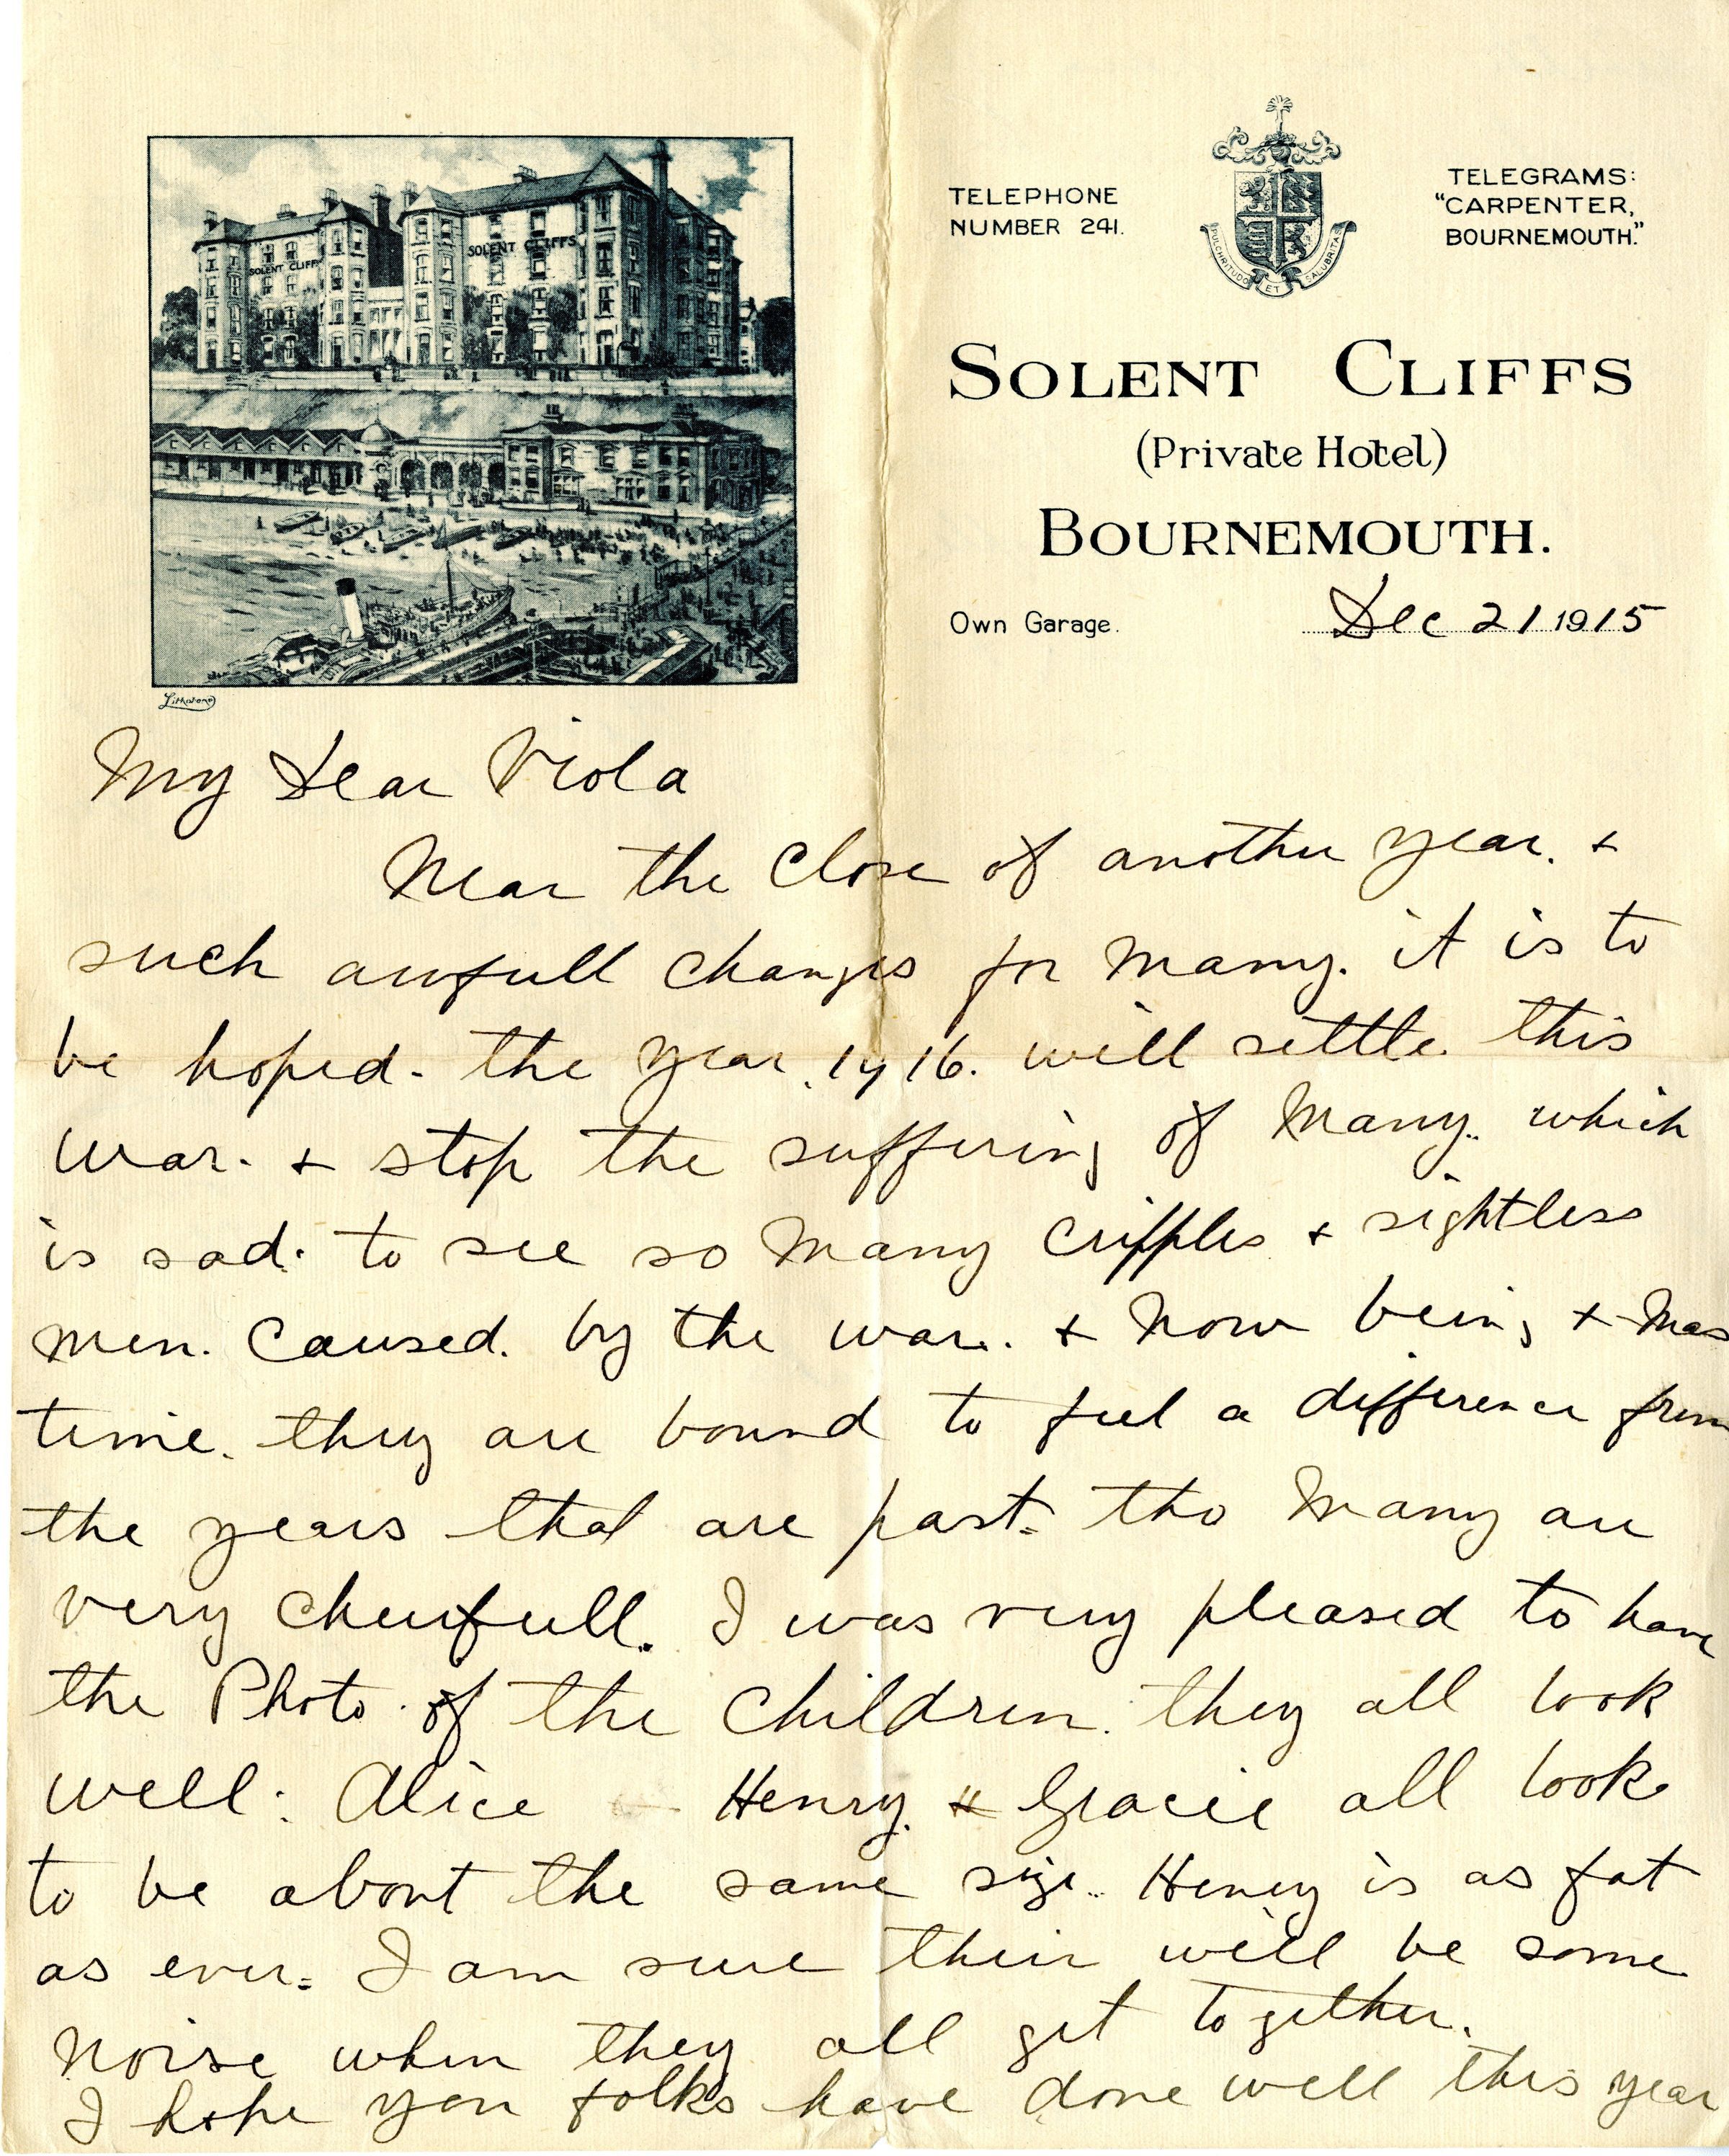 SOLENT CLIFFS
SOLENT CLIFFS
TELEPHONE
NUMBER 241.
PULCHRITUDO ET SALUBRITAS
TELEGRAMS:
"CARPENTER,
BOURNEMOUTH."
SOLENT CLIFFS
(Private Hotel)
BOURNEMOUTH.
Own Garage.
Dec 21 1915
My Dear Viola
Near the Close of another year. +
such awfull changes for many. it is to
be hoped. the year. 1916. will settle this
war. + stop the suffering of Many. which
is sad. to see so Many cripples + sightless
men. Caused. by the war. + Now being + Mas
time. they are bound to feel a difference from
the years that are past. tho Many are
very cheerfull. I was very pleased to have
the Photo of the Children. they all look
well. Alice Henry. + Gracie all look
to be about the same size. Henry is as fat
as ever. I am sure their will be some
Noise when they all get together.
I hope you folks have done well this year